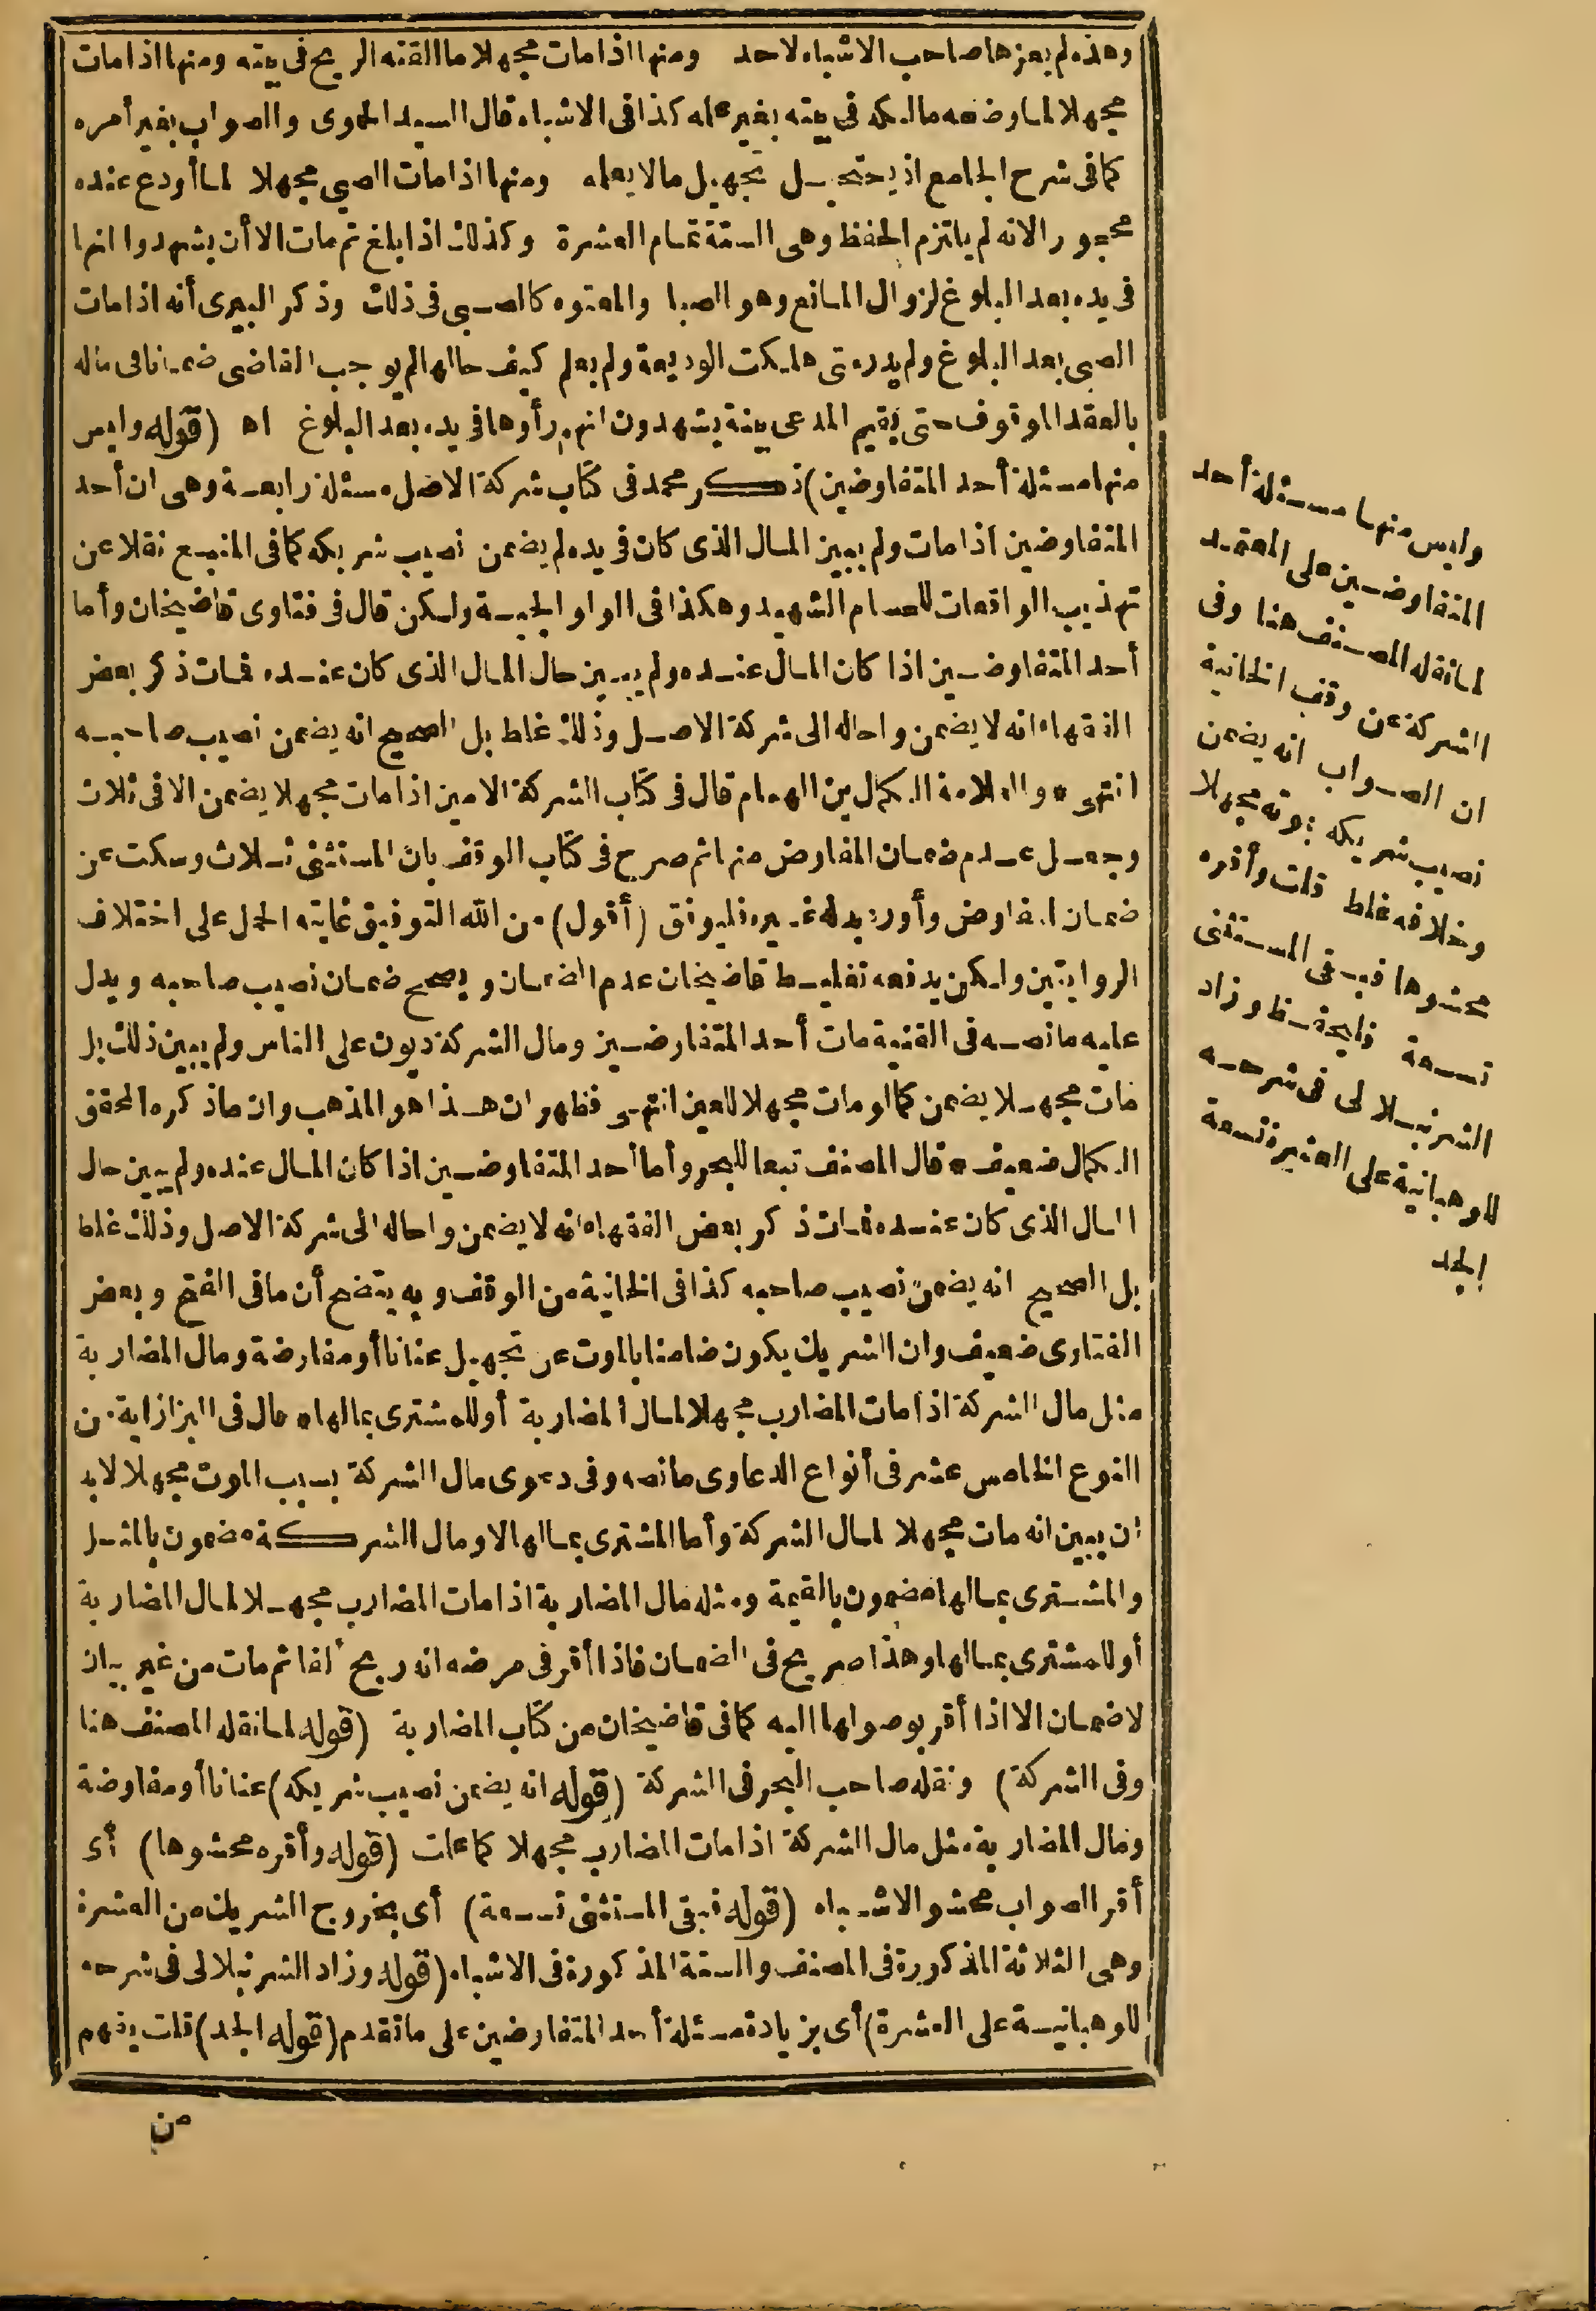 وهذه لم يعزها صاحب الاشباه لاحد ومنها اذا مات مجهلا ما القته الريح فى بيته ومنها اذا مات
مجهلا لما وضعه مالكه فى بيته بغير علمه كذا فى الاشباه قال السيد الحموى والصواب بغير أمره
كما فى شرح الجامع اذ يستحيل تجهيل مالا يعلمه ومنها اذا مات الصبى مجهلا لما أودع عنده
محجورا لانه لم يلتزم الحفظ وهى الستة تمام العشرة وكذلك اذا بلغ ثم مات الا أن يشهدوا انها
فى يده بعد البلوغ لزوال المانع وهو الصبا والمعتوه كالصبى فى ذلك وذكر البيرى أنه اذا مات
الصبى بعد البلوغ ولم يدر متى هلكت الوديعة ولم يعلم كيف حالها لم يوجب القاضى ضمانا فى ماله
بالعقد الموقوف حتى يقيم المدعى بينة يشهدون انهم رأوها فى يده بعد البلوغ اه (قوله وليس
منها مسئلة أحد المتفاوضين) ذكر محمد فى كتاب شركة الاصل مسئلة رابعة وهى ان أحد
المتفاوضين اذا مات ولم يبين المال الذى كان فى يده لم يضمن نصيب شريكه كما فى المنبع نقلا عن
تهذيب الواقعات للحسام الشهيد وهكذا فى الولوالجية ولكن قال فى فتاوى قاضيخان وأما
أحد المتفاوضين اذا كان المال عنده ولم يبين حال المال الذى كان عنده فمات ذكر بعض
الفقهاء انه لا يضمن واحاله الى شركة الاصل وذلك غلط بل الصحيح انه يضمن نصيب صاحبه
انتهى * والعلامة الكمال بن الهمام قال فى كتاب الشركة الامين اذا مات مجهلا يضمن الا فى ثلاث
وجعل عدم ضمان المفاوض منها ثم صرح فى كتاب الوقف بان المستثنى ثلاث وسكت عن
ضمان المفاوض وأورد بدله غيره فليوفق (أقول) من الله التوفيق غايته الحمل على اختلاف
الروايتين ولكن يدفعه تغليط قاضيخان عدم الضمان ويصحح ضمان نصيب صاحبه ويدل
عليه ما نصه فى القنية مات أحد المتفاوضين ومال الشركة ديون على الناس ولم يبين ذلك بل
مات مجهلا يضمن كما لو مات مجهلا للعين انتهى فظهر ان هذا هو المذهب وان ماذكره المحقق
الكمال ضعيف * قال المصنف تبعا للبحر وأما أحد المتفاوضين اذا كان المال عنده ولم يبين حال
المال الذى كان عنده فمات ذكر بعض الفقهاء انه لا يضمن واحاله الى شركة الاصل وذلك غلط
بل الصحيح انه يضمن نصيب صاحبه كذا فى الخانية من الوقف وبه يتضح أن ما فى الفتح وبعض
الفتاوى ضعيف وان الشريك يكون ضامنا بالموت عن تجهيل عنانا أو مفاوضة ومال المضاربة
مثل مال الشركة اذا مات المضارب مجهلا لمال المضاربة أو للمشترى بمالها * قال فى البزازية من
النوع الخامس عشر فى أنواع الدعاوى ما نصه وفى دعوى مال الشركة بسبب الموت مجهلا لابد
ان يبين انه مات مجهلا لمال الشركة وأما المشترى بمالها لا ومال الشركة مضمون بالمثل
والمشترى بمالها مضمون بالقيمة ومثله مال المضاربة اذا مات المضارب مجهلا لمال المضاربة
أو للمشترى بمالها وهذا صريح فى الضمان فاذا أقر فى مرضه انه ربح ألفا ثم مات من غير بيان
لا ضمان الا اذا أقر بوصولها اليه كما فى قاضيخان من كتاب المضاربة (قوله لما نقله المصنف هنا
وفى الشركة) ونقله صاحب البحر فى الشركة (قوله انه يضمن نصيب شريكه) عنانا أو مفاوضة
ومال المضاربة مثل مال الشركة اذا مات المضارب مجهلا كما علمت (قوله وأقره محشوها) أى
أقر الصواب محشو الاشباه (قوله فبقى المستثنى تسعة) أى بخروج الشريك من العشرة
وهى الثلاثة المذكورة فى المصنف والستة المذكورة فى الاشباه (قوله وزاد الشرنبلالى فى شرحه
للوهبانية على العشرة) أى بزيادة مسئلة أحد المتفاوضين على ما تقدم (قوله الجد) قلت يفهم
من
وليس منها مسئلة أحد
المتفاوضين على المعتمد
لما نقله المصنف هنا وفى
الشركة عن وقف الخانية
ان الصواب انه يضمن
نصيب شريكه بموته مجهلا
وخلافه غلط قلت وأقره
محشوها فبقى المستثنى
تسعة فليحفظ وزاد
الشرنبلالى فى شرحه
للوهبانية على العشرة تسعة
الجد